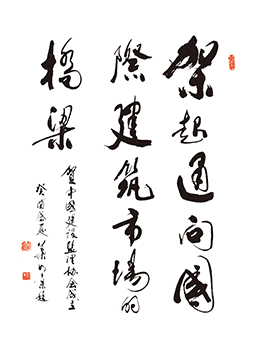 架起通向國
際建筑市場的
橋梁
賀中國建設監理協會成立
癸酉盛夏